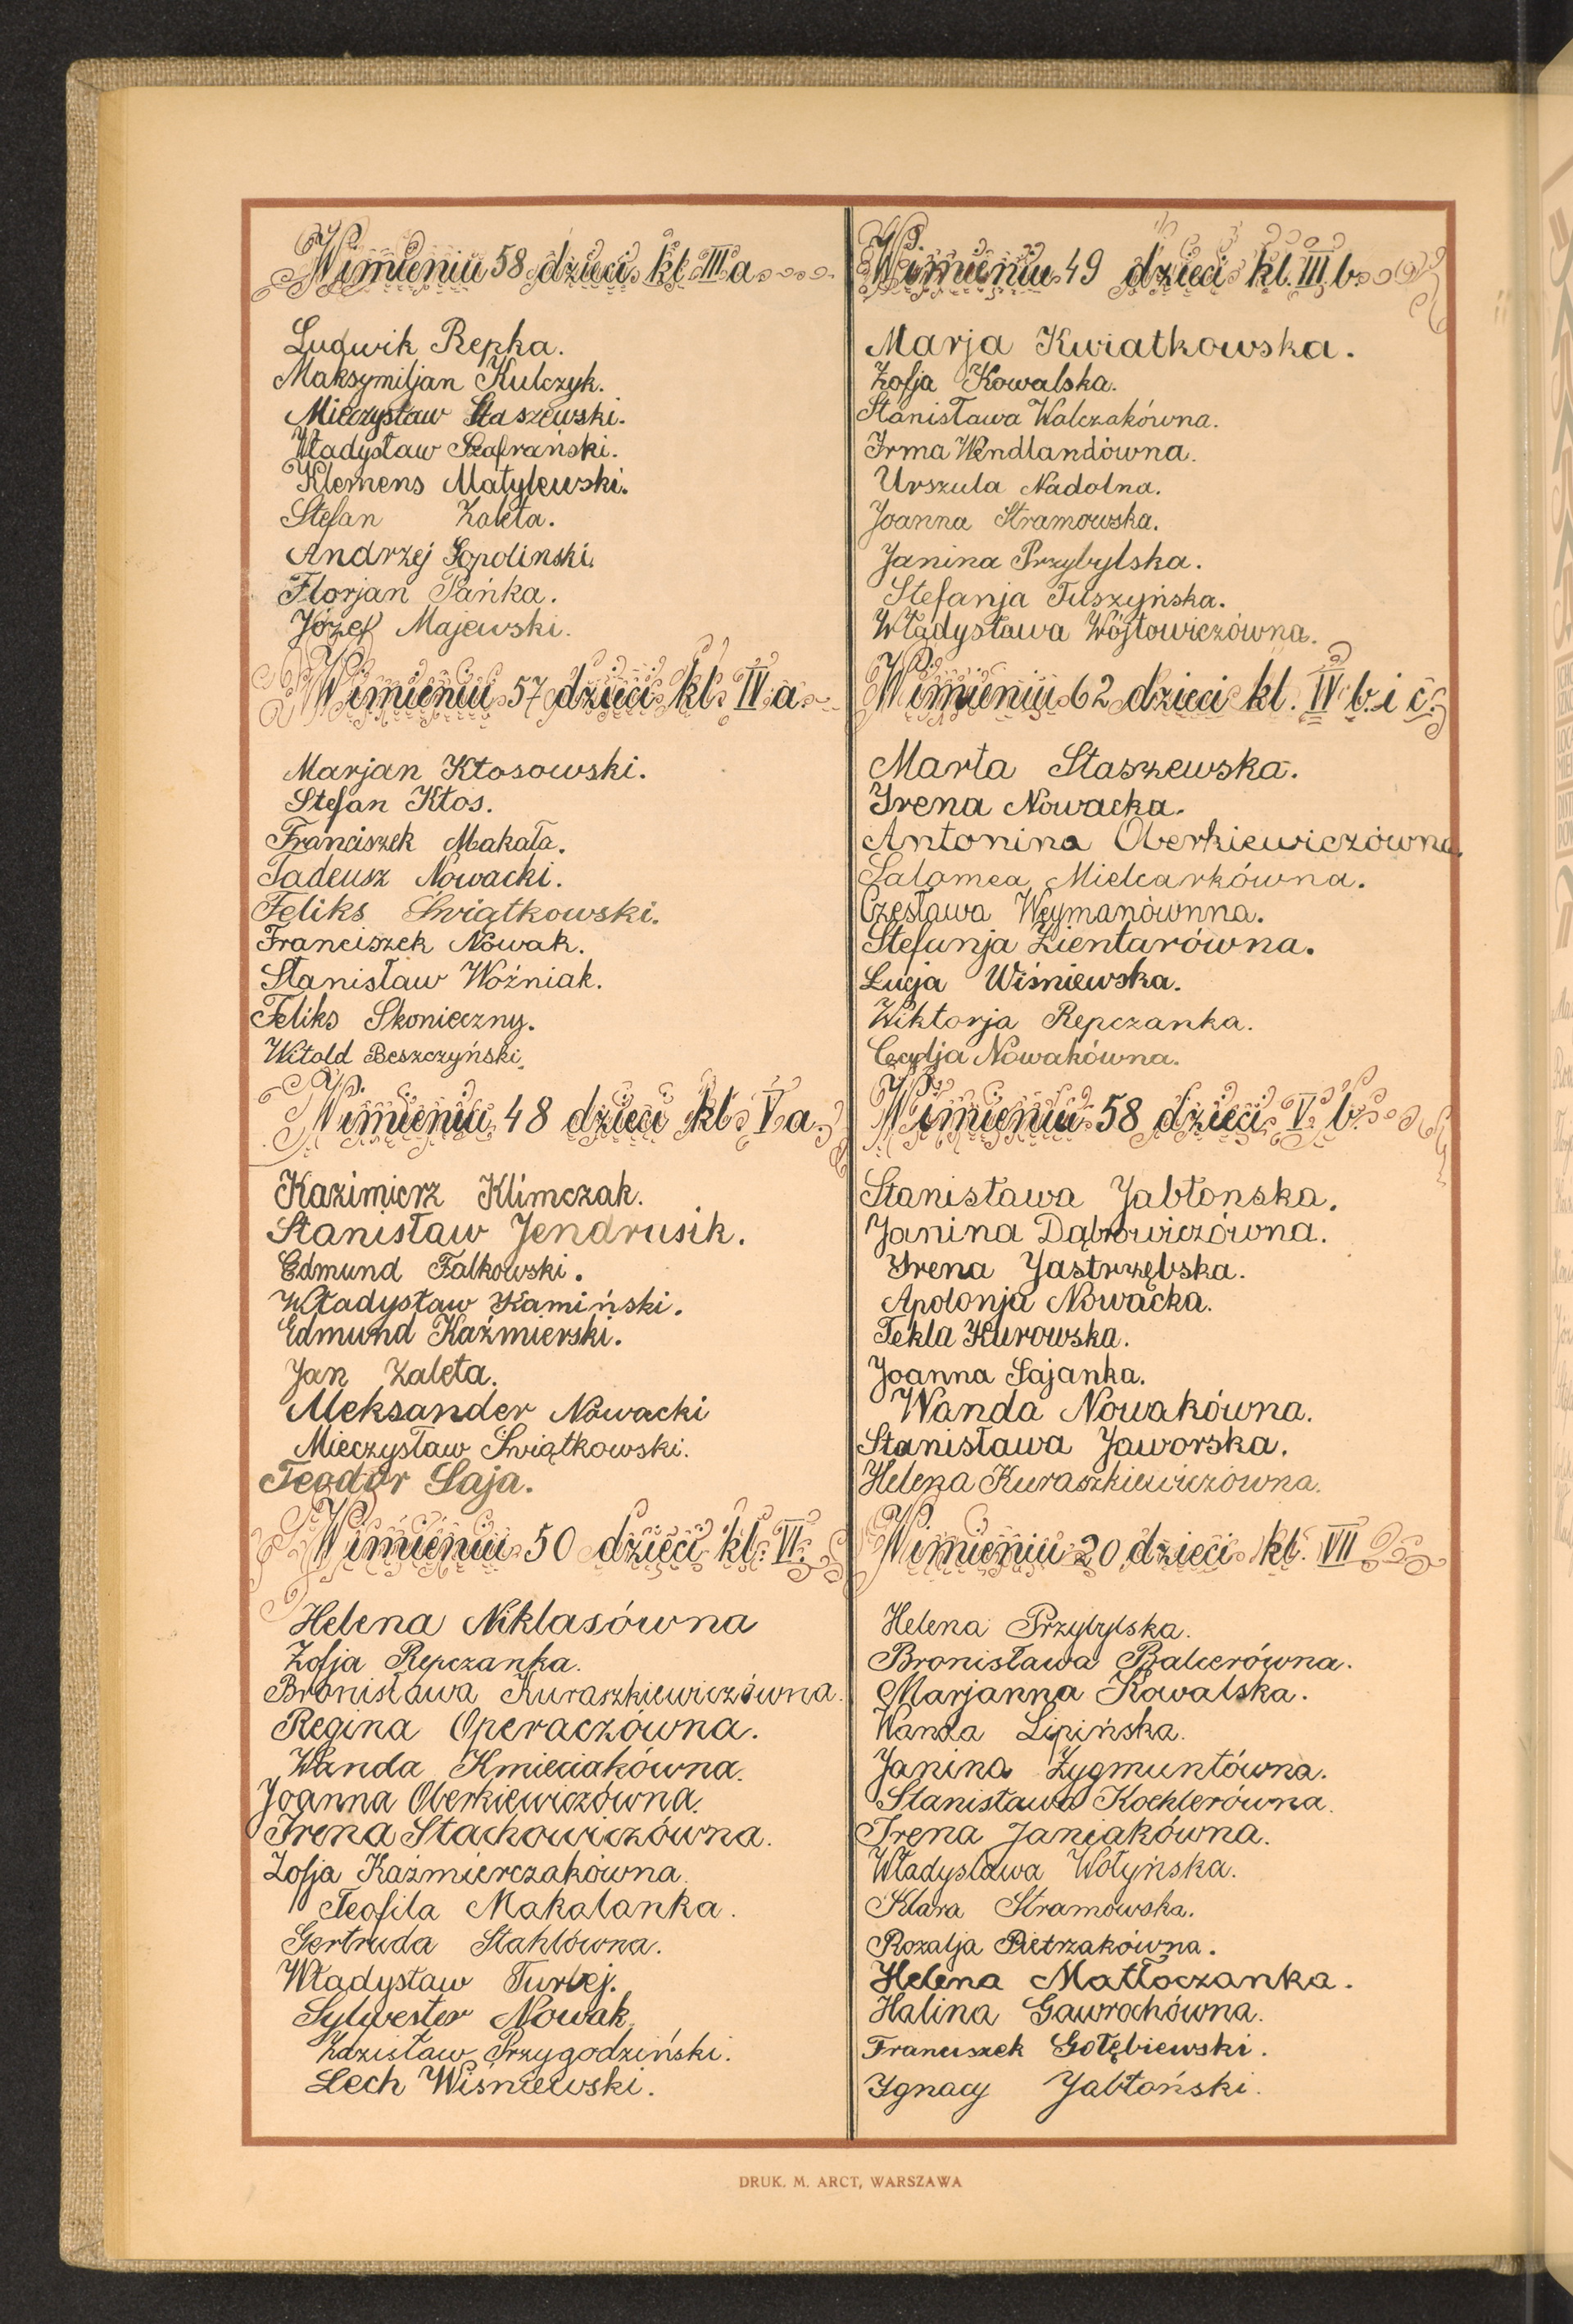 W imieniu 58 dzieci kl. III a
Ludwik Repka.
Maksymiljan Kulczyk.
Mieczysław Staszewski.
Władysław Szafrański.
Klemens Matylewski.
Stefan Zaleta.
Andrzej Sopolinski.
Florjan Pańka.
Józef Majewski.
W imieniu 57 dzieci kl. IV a.
Marjan Kłosowski.
Stefan Kłos.
Franciszek Makała.
Tadeusz Nowacki.
Feliks Swiątkowski.
Franciszek Nowak.
Stanisław Woźniak.
Feliks Skonieczny.
Witold Beszczyński.
W imieniu 48 dzieci kl. V a.
Kazimierz Klimczak.
Stanisław Jendrusik.
Edmund Falkowski.
Władysław Kamiński.
Edmund Kaźmierski.
Jan Zaleta.
Aleksander Nowacki
Mieczysław Swiątkowski.
Teodor Łaja.
W imieniu 50 dzieci kl. VI.
Helena Niklasówna
Zofja Repczanka.
Bronisława Kuraszkiewiczówna.
Regina Operaczówna.
Wanda Kmieciakówna.
Joanna Oberkiewiczówna.
Irena Stachowiczówna.
Zofja Kaźmierczakówna.
Teofila Makalanka.
Gertruda Stahlówna.
Władysław Turbej.
Sylwester Nowak.
Zdzisław Przygodziński.
Lech Wiśniewski.
W imieniu 49 dzieci kl. III b.
Marja Kwiatkowska.
Zofja Kowalska.
Stanisława Walczakówna.
Irma Wendlandówna.
Urszula Nadolna.
Joanna Stramowska.
Janina Przybylska.
Stefanja Tuszyńska.
Władysława Wójtowiczówna.
W imieniu 62 dzieci kl. IV b. i c.
Marta Staszewska.
Irena Nowacka.
Antonina Oberkiewiczówna.
Salomea Mielcarkówna.
Czesława Weymanównna.
Stefanja Zientarówna.
Łucja Wiśniewska.
Wiktorja Repczanka.
Nowakówna.
W imieniu 58 dzieci V. b.
Stanisława Jabłonska.
Janina Dąbrowiczówna.
Irena Jastrzębska.
Apolonja Nowacka.
Tekla Kurowska.
Joanna Łajanka.
Wanda Nowakówna.
Stanisława Jaworska.
Helena Kuraszkiewiczówna.
W imieniu 20 dzieci kl. VII
Helena Przybylska.
Bronisława Balcerówna.
Marjanna Kowalska.
Wanda Lipińska.
Janina Zygmuntówna.
Stanisława Koehlerówna.
Irena Janiakówna.
Władysława Wołyńska.
Klara Stramowska.
Rozalja Pietrzakówna.
Helena Matłoczanka.
Halina Gawrochówna.
Franciszek Gołębiewski.
Ignacy Jabłoński.
DRUK. M. ARCT, WARSZAWA